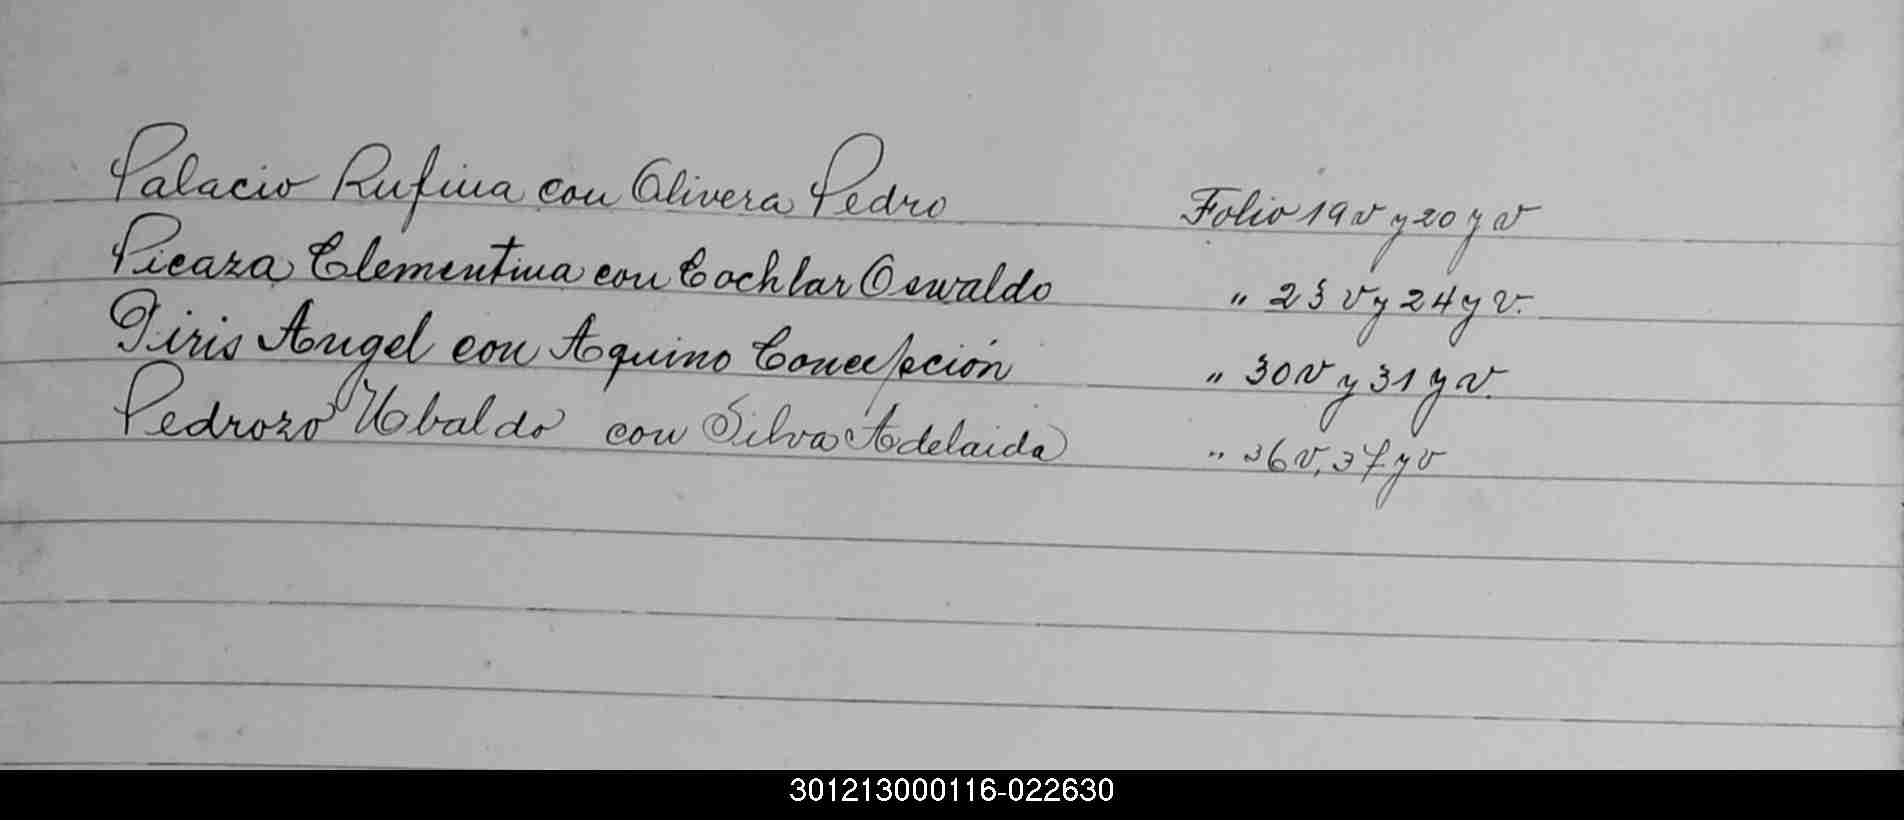 Palacio Rufina con Olivera Pedro Folio 19 v y 20 y v
Picaza Clementina con Cochlar Oswaldo " 23 v y 24 y v.
Piris Angel con Aquino Concepción " 30 v y 31 y v.
Pedrozo Ubaldo con Silva Adelaida " 36 v, 37 y v
301213000116-022630